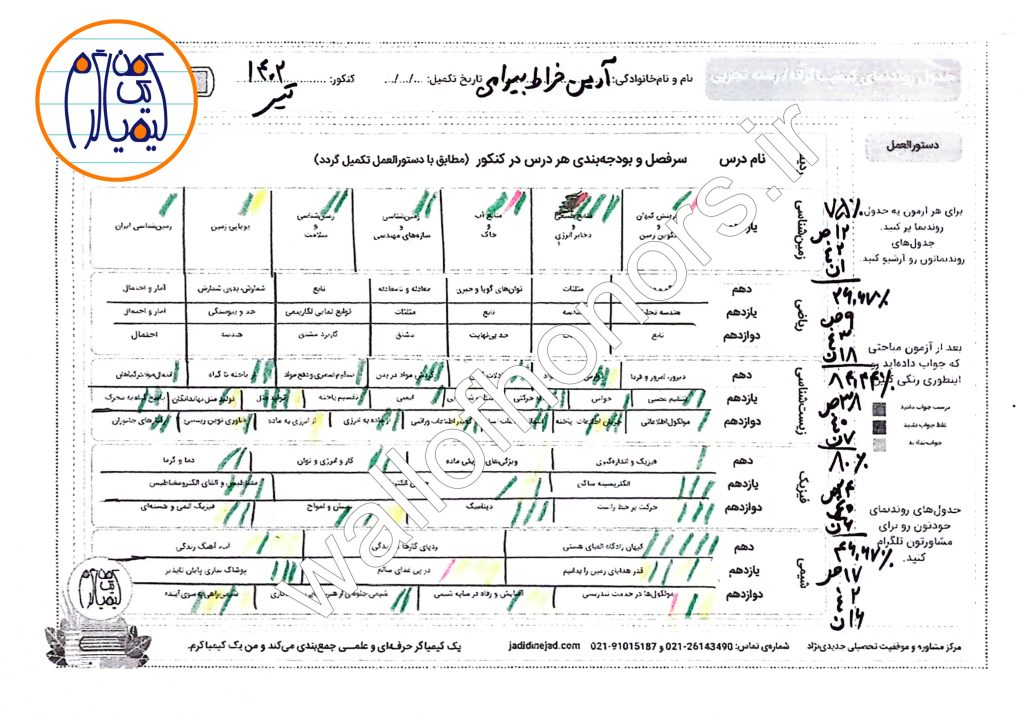 من یک کیمیاگرم
جدول روندنمای کیمیاگرانه/ رشته تجربی
نام و نام‌خانوادگی: آرین خراط بیرامی
تاریخ تکمیل: .../.../...
کنکور: تیر ۱۴۰۲
دستورالعمل
ردیف نام درس سرفصل و بودجه‌بندی هر درس در کنکور (مطابق با دستورالعمل تکمیل گردد)
برای هر آزمون یه جدول روندنما پر کنید.
جدول‌های روندنماتون رو آرشیو کنید.
بعد از آزمون مباحثی که جواب داده‌اید رو اینطوری رنگی کنید
درست جواب دادید
غلط جواب دادید
جواب ندادید
جدول‌های روندنمای خودتون رو برای مشاورتون تلگرام کنید.
زمین‌شناسی
۷۵٪
۱۲ ص
یازدهم
آفرینش کیهان و تکوین زمین
منابع آب و خاک
زمین‌شناسی و سازه‌های مهندسی
زمین‌شناسی و سلامت
پویایی زمین
زمین‌شناسی ایران
ریاضی
۹ ص
۱۸ ن
دهم
مثلثات
توان‌های گویا و جبری
معادله و نامعادله
تابع
شمارش، بدون شمارش
آمار و احتمال
یازدهم
هندسه
تابع
مثلثات
توابع نمایی لگاریتمی
حد و پیوستگی
آمار و احتمال
دوازدهم
تابع
حد بی‌نهایت
مشتق
کاربرد مشتق
هندسه
احتمال
زیست‌شناسی
۸۴٫۴۴٪
۳۸ ص
۷ ن
دهم
دیروز، امروز و فردا
گردش مواد در بدن
تنظیم اسمزی و دفع مواد
از یاخته تا گیاه
یازدهم
تنظیم عصبی
حواس
ایمنی
تقسیم یاخته
تولید مثل
تولید مثل نهاندانگان
پاسخ گیاهان به محرک
دوازدهم
مولکول اطلاعاتی
جریان اطلاعات یاخته
تغییر اطلاعات وراثتی
از ماده به انرژی
از انرژی به ماده
فناوری نوین زیستی
رفتارهای جانوران
فیزیک
۸۰٪
دهم
فیزیک و اندازه‌گیری
ویژگی‌های فیزیکی ماده
کار و انرژی و توان
دما و گرما
یازدهم
الکتریسیته ساکن
مغناطیس و القای الکترومغناطیس
دوازدهم
حرکت بر خط راست
دینامیک
نوسان و امواج
فیزیک اتمی و هسته‌ای
شیمی
۱۷ ص
۲
۱۶ ن
دهم
کیهان زادگاه الفبای هستی
ردپای گازها در زندگی
آب، آهنگ زندگی
یازدهم
قدر هدایای زمین را بدانیم
در پی غذای سالم
پوشاک نیازی پایان ناپذیر
دوازدهم
مولکول‌ها در خدمت تندرستی
آسایش و رفاه در سایه شیمی
شیمی راهی به سوی آینده
wallofhonors.ir
من یک کیمیاگرم
مرکز مشاوره و موفقیت تحصیلی جدیدی‌نژاد
شماره‌ی تماس: 26143490-021 و 91015187-021
jadidinejad.com
یک کیمیاگر حرفه‌ای و علمی جمع‌بندی می‌کند و من یک کیمیاگرم.